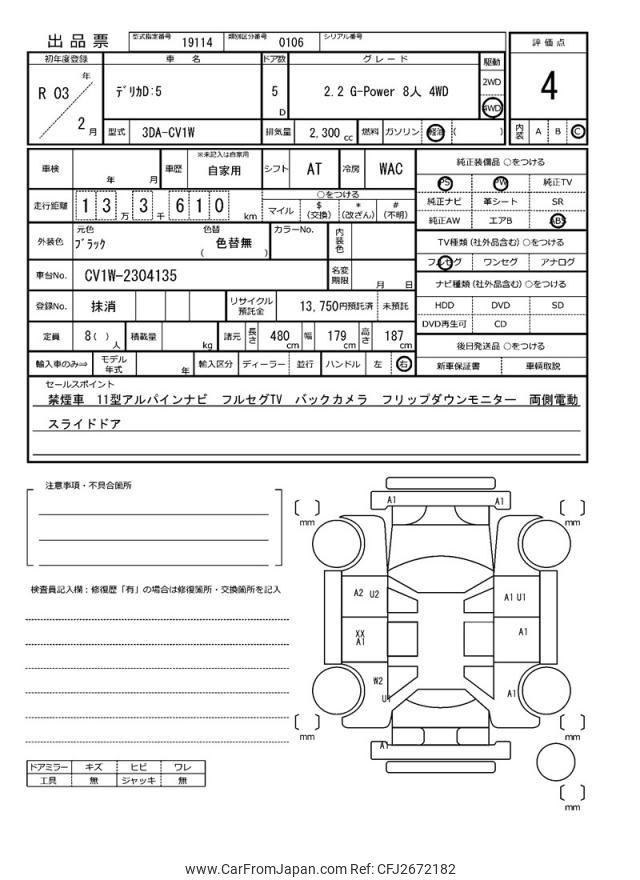 出品票 型式指定番号 19114 類別区分番号 0106 シリアル番号
評価点
4
内装 A B C
初年度登録 車名 ドア数 グレード 駆動
R 03 年 2 月 デリカD:5 5 D 2.2 G-Power 8人 4WD 2WD 4WD
型式 3DA-CV1W 排気量 2,300 cc 燃料 ガソリン 軽油 ( )
車検 年 月 車歴 ※未記入は自家用 自家用 シフト AT 冷房 WAC
走行距離 1 3 万 3 千 6 1 0 km
○をつける
マイル $ (交換) * (改ざん) # (不明)
外装色 元色 ブラック 色替 ( 色替無 ) カラーNo. 内装色
車台No. CV1W-2304135 名変期限 月 日
登録No. 抹消 リサイクル預託金 13,750円預託済 未預託
定員 8( ) 人 積載量 kg 諸元 長さ 480 cm 幅 179 cm 高さ 187 cm
輸入車のみ⇒ モデル年式 年 輸入区分 ディーラー 並行 ハンドル 左 右
純正装備品 ○をつける
PS PW 純正TV
純正ナビ 革シート SR
純正AW エアB ABS
TV種類 (社外品含む) ○をつける
フルセグ ワンセグ アナログ
ナビ種類 (社外品含む) ○をつける
HDD DVD SD
DVD再生可 CD
後日発送品 ○をつける
新車保証書 車輌取説
セールスポイント
禁煙車 11型アルパインナビ フルセグTV バックカメラ フリップダウンモニター 両側電動
スライドドア
注意事項・不具合箇所
検査員記入欄：修復歴「有」の場合は修復箇所・交換箇所を記入
ドアミラー キズ ヒビ ワレ
工具 無 ジャッキ 無
A1 A1
mm mm
A2 U2 A1 U1
XX
A1 A1
W2
U1 A1
mm mm
A1
mm
www.CarFromJapan.com Ref: CFJ2672182